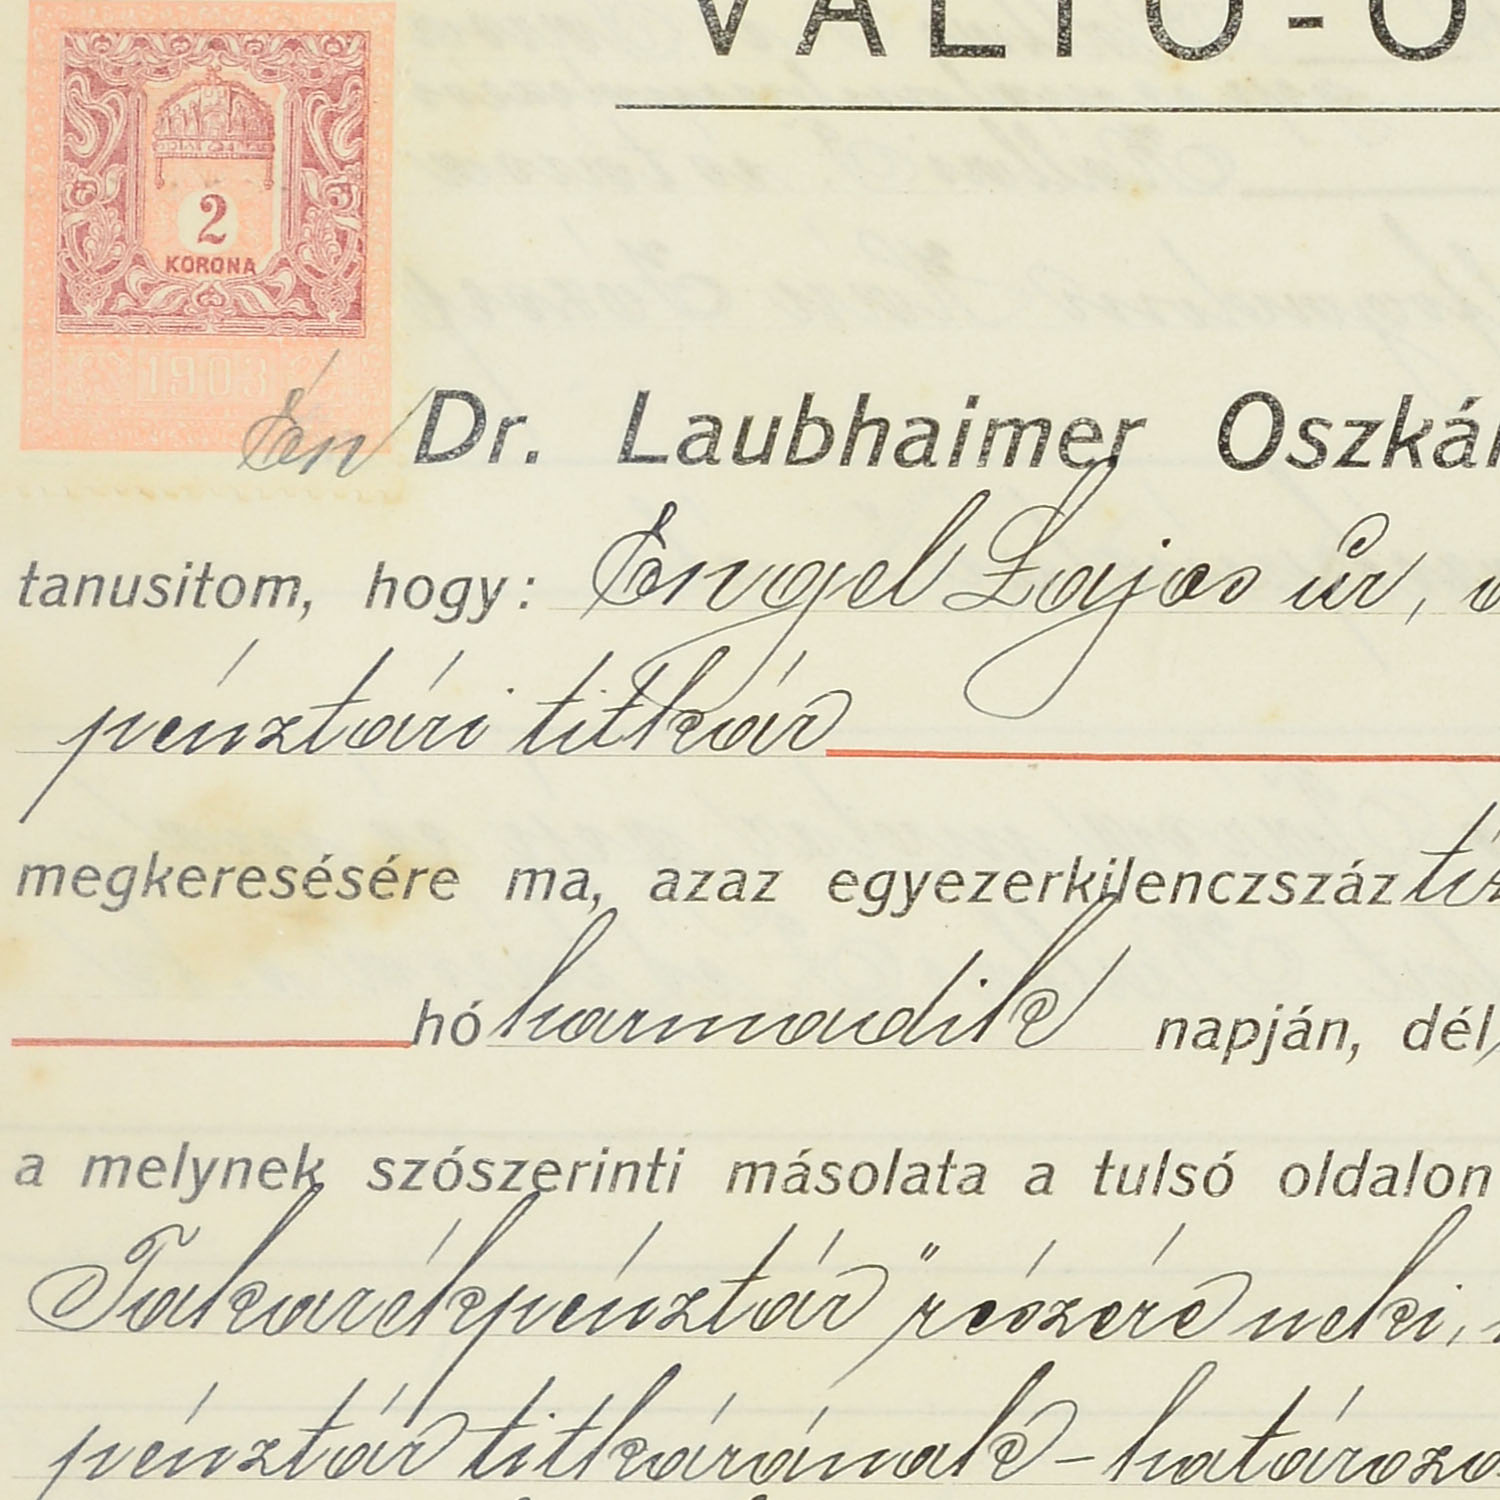 VÁLTÓ-Ó
2
KORONA
1903
Én Dr. Laubhaimer Oszkár
tanusitom, hogy: Engel Lajos úr,
pénztári titkár
megkeresésére ma, azaz egyezerkilenczszáz
hó harmadik napján, dél
a melynek szószerinti másolata a tulsó oldalon
Takarékpénztár" részére neki,
pénztár titkárának - határozo